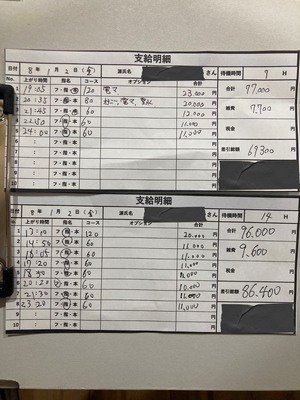 支給明細
日付 8年 1月 2日(金) 源氏名 さん 待機時間 9 H
No. 上がり時間 指名 コース オプション
1 19:05 フ・指・本 120 電マ 23,000 円
2 20:35 フ・指・本 80 20,000 円
3 21:45 フ・指・本 60 12,000 円
4 22:50 フ・指・本 60 11,000 円
5 24:00 フ・指・本 60 11,000 円
6 フ・指・本 円
7 フ・指・本 円
8 フ・指・本 円
9 フ・指・本 円
10 フ・指・本 円
合計 77,000 円
雑費 7,700 円
税金 円
差引総額 69300 円
支給明細
日付 8年 1月 2日(金) 源氏名 さん 待機時間 14 H
No. 上がり時間 指名 コース オプション
1 13:10 フ・指・本 120 20,000 円
2 14:50 フ・指・本 60 11,000 円
3 16:05 フ・指・本 60 11,000 円
4 17:20 フ・指・本 60 11,000 円
5 18:50 フ・指・本 60 円
6 20:20 フ・指・本 60 10,000 円
7 21:30 フ・指・本 60 11,000 円
8 23:20 フ・指・本 60 11,000 円
9 フ・指・本 円
10 フ・指・本 円
合計 96,000 円
雑費 9,600 円
税金 円
差引総額 86,400 円